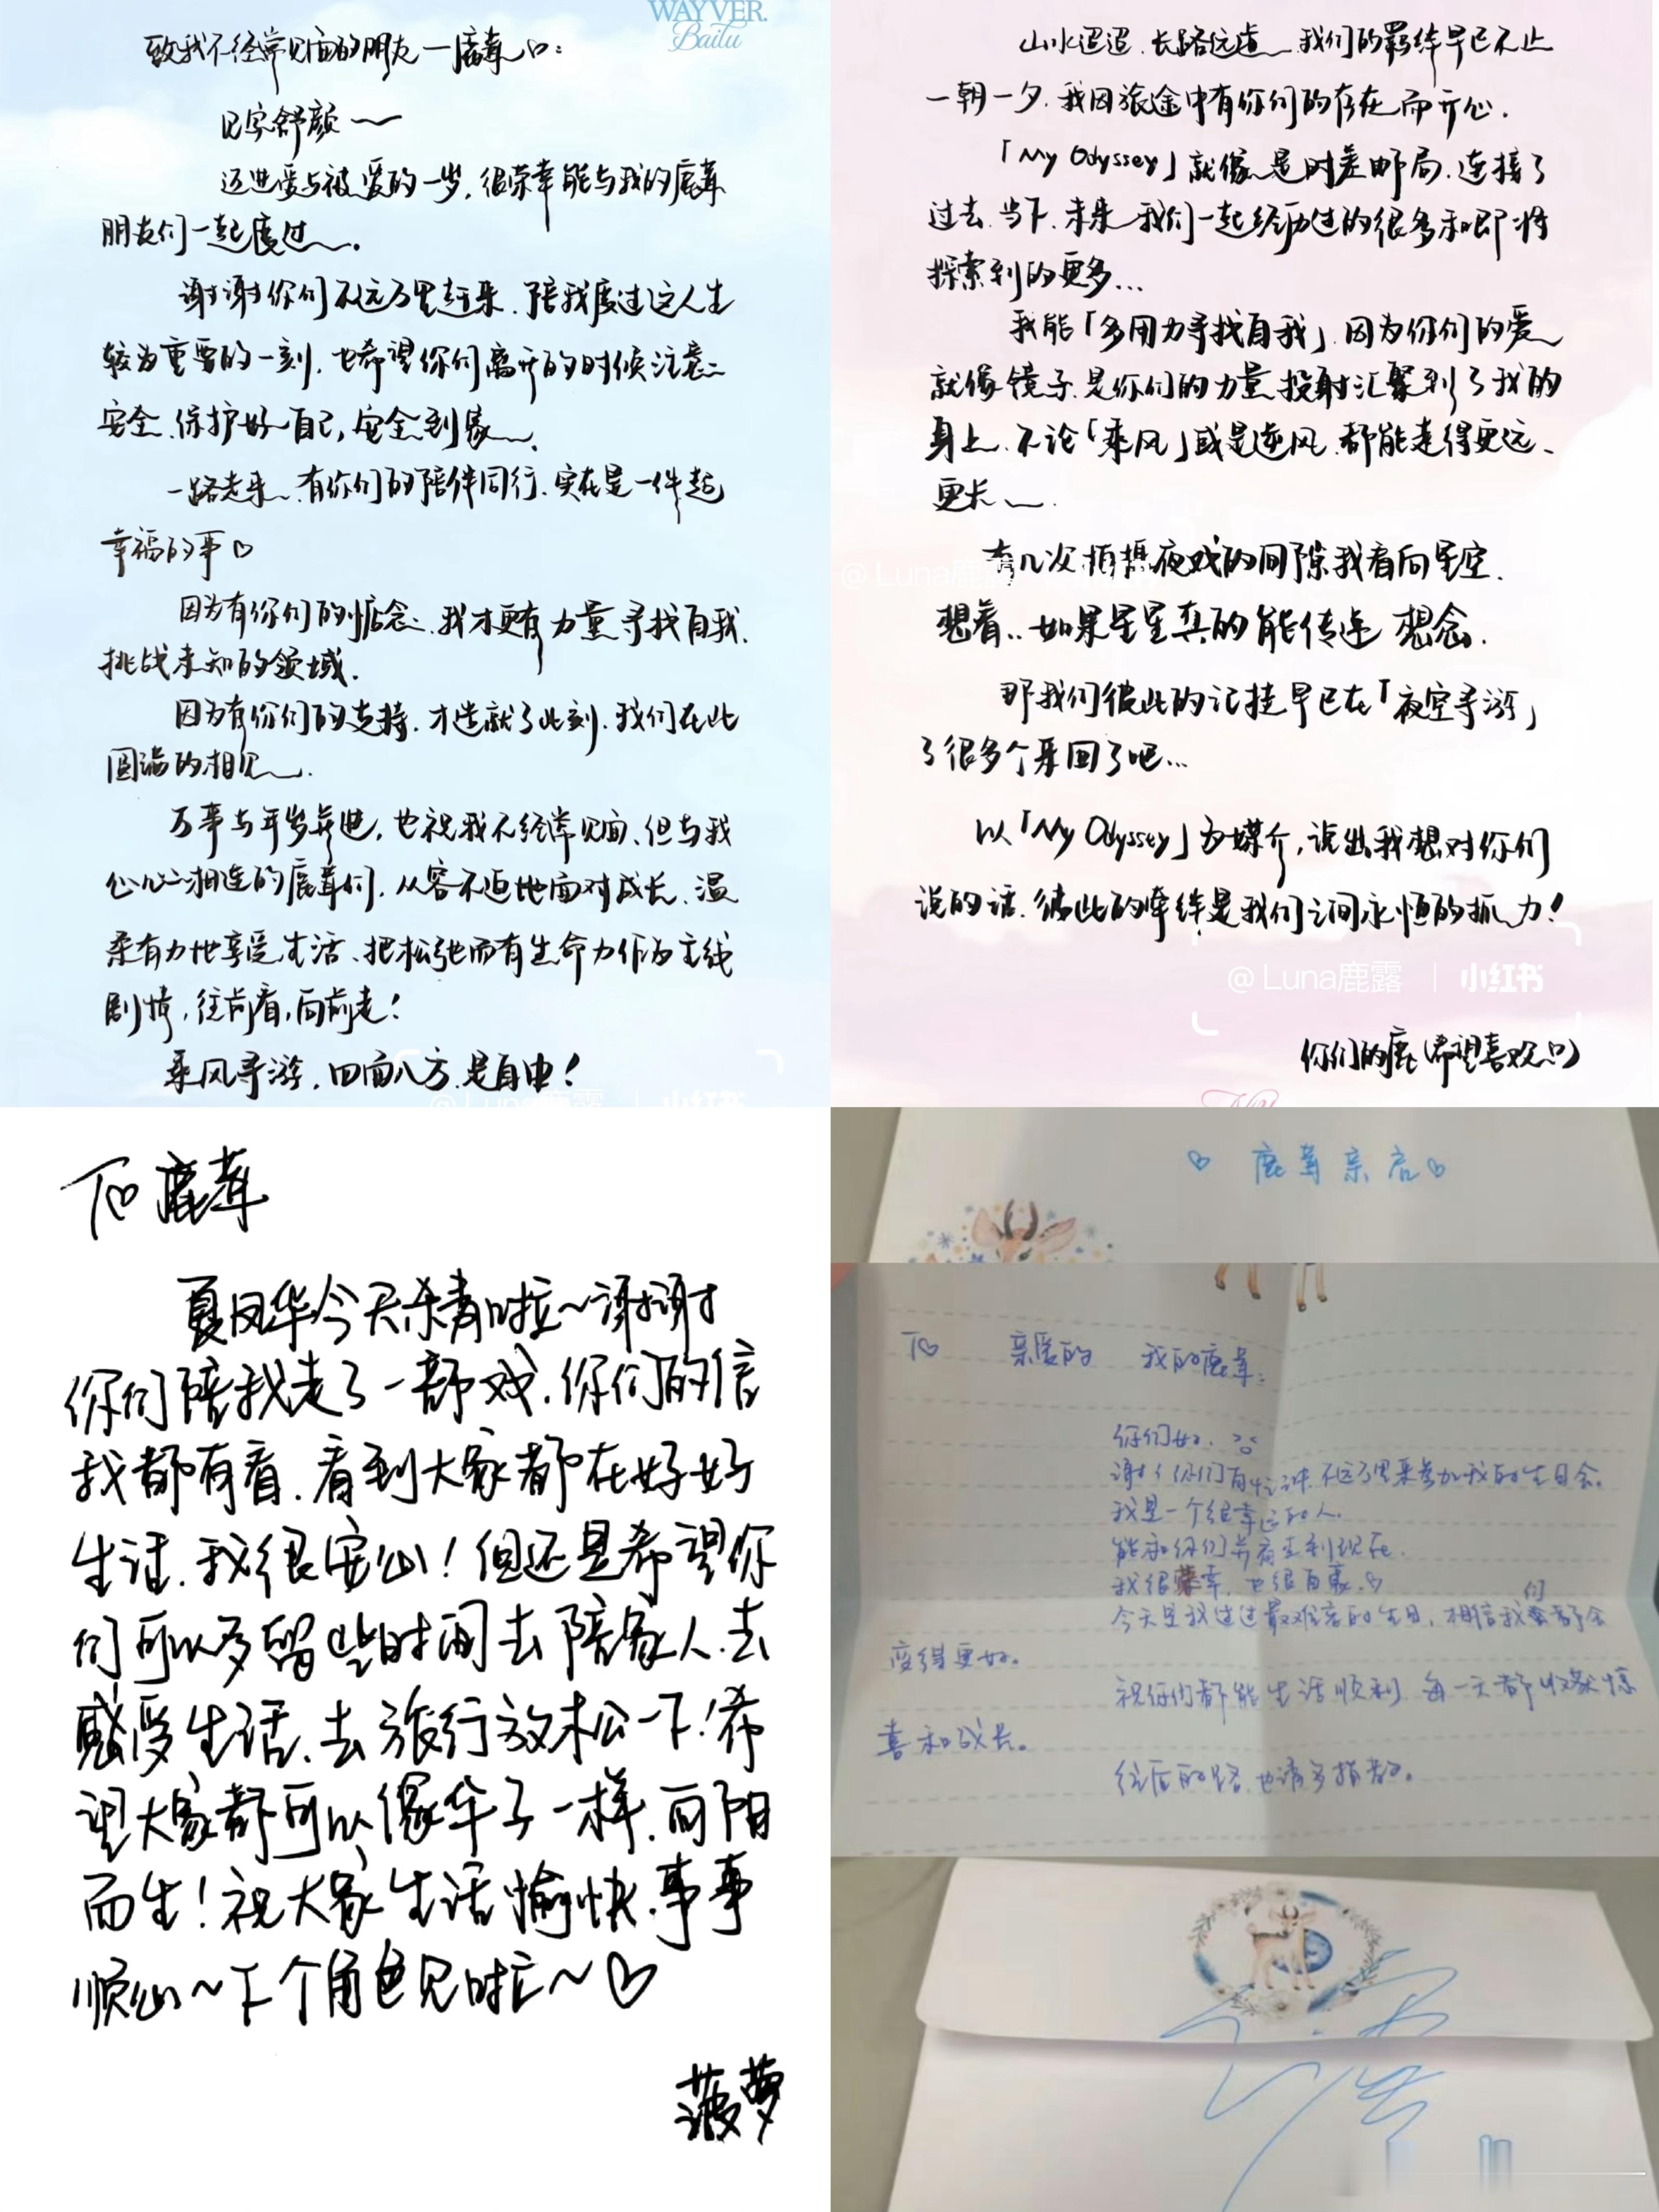 WAYVER.
Bailu
致我不经常见面的朋友一鹿茸♡:
见字舒颜～
迈进爱与被爱的一步,很荣幸能与我的鹿茸
朋友们一起度过～.
谢谢你们不远万里赶来.陪我度过这人生
较为重要的一刻.也希望你们离开的时候注意
安全.保护好自己,安全到家～.
一路走来、有你们的陪伴同行.实在是一件超
幸福的事♡
因为有你们的惦念、我才更有力量寻找自我.
挑战未知的领域.
因为有你们的支持.才造就了此刻.我们在此
圆满的相见～.
万事与年岁并进,也祝我不经常见面、但与我
心心相连的鹿茸们.从容不迫地面对成长、温
柔有力地享受生活、把松弛而有生命力作为主线
剧情,往前看,向前走!
乘风寻游.四面八方.是自由!
@ Luna鹿露 | 小红书
山水迢迢.长路远道、我们的羁绊早已不止
一朝一夕.我因旅途中有你们的存在而开心.
「My Odyssey」就像是时差邮局.连接了
过去.当下.未来、我们一起经历过的很多和即将
探索到的更多...
我能「多用力寻找自我」因为你们的爱
就像镜子.是你们的力量投射汇聚到了我的
身上.不论「乘风」或是逆风.都能走得更远、
更长～.
@ Luna鹿露
有几次拍摄夜戏的间隙我看向星空.
想着..如果星星真的能传递想念.
那我们彼此的记挂早已在「夜空寻游」
了很多个来回了吧...
以「My Odyssey」为媒介,说出我想对你们
说的话.彼此的牵绊是我们之间永恒的抓力!
@ Luna鹿露 | 小红书
你们的鹿(希望喜欢♡)
To 鹿茸
夏凤华今天杀青啦~谢谢
你们陪我走了一部戏.你们的信
我都有看.看到大家都在好好
生活.我很安心!但还是希望你
们可以多留些时间去陪家人.去
感受生活.去旅行放松一下!希
望大家都可以像华子一样.向阳
而生!祝大家生活愉快.事事
顺心~下个角色见啦~♡
菠萝
♡ 鹿茸亲启♡
To 亲爱的 我的鹿茸:
你们好.
谢谢你们百忙之中.不远万里来参加我的生日会.
我是一个很幸运的人.
能和你们并肩走到现在.
我很荣幸,也很自豪.♡
今天是我过过最难忘的生日,相信我们都会
变得更好。
祝你们都能生活顺利.每一天都收获惊
喜和成长。
往后的路,也请多指教。